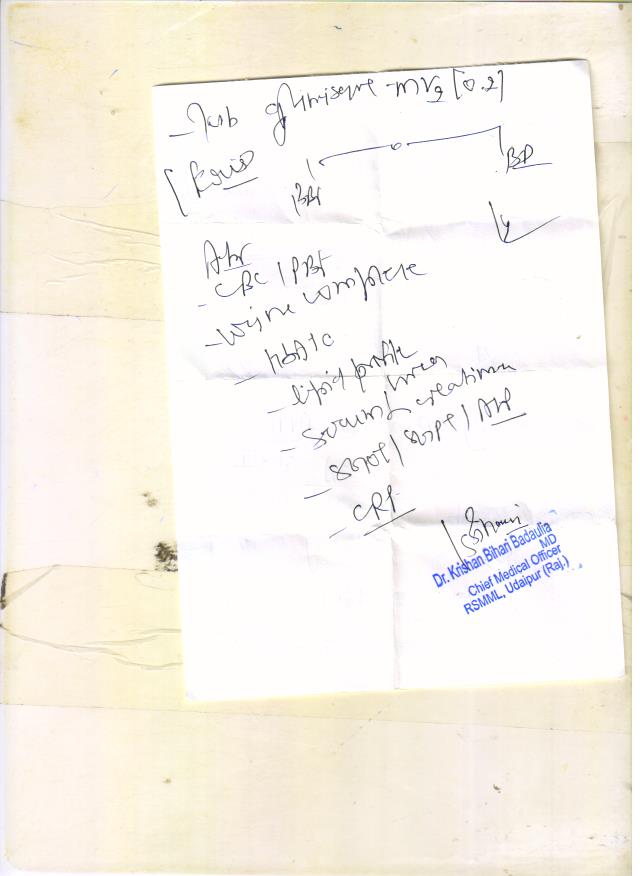 - Tab glimisave-mV2 [0.2]
BBF o BD
Adv
- CBC / PBF
- urine complete
- HbA1c
- lipid profile
- serum urea / creatinine
- SGOT / SGPT / ALP
- CRP
Dr. Krishan Bihari Badaulia
MD
Chief Medical Officer
RSMML, Udaipur (Raj.)